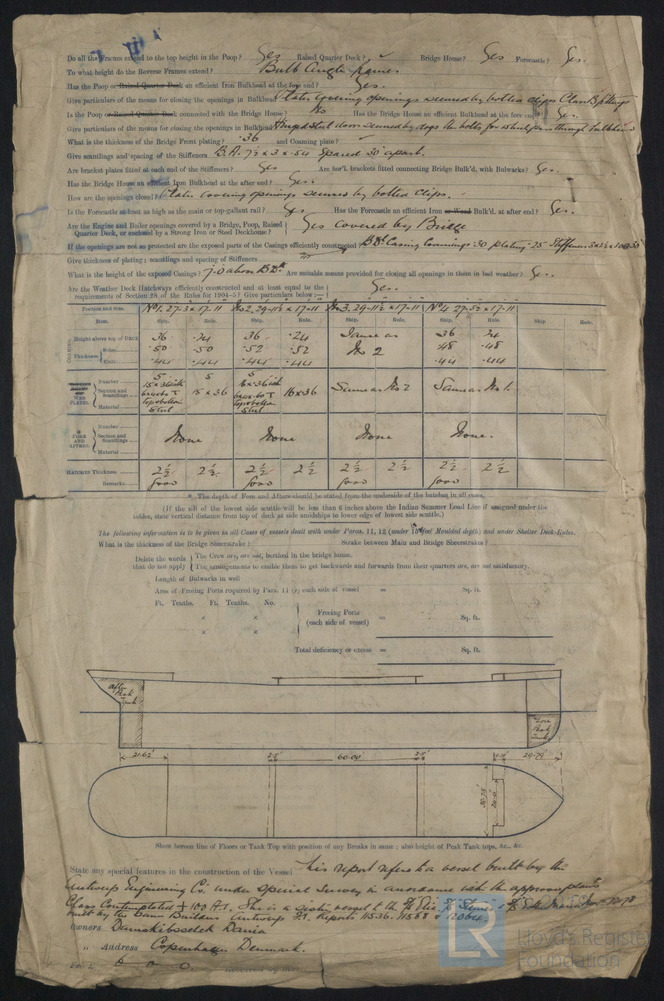 Do all the Frames extend to the top height in the Poop? Yes Raised Quarter Deck? Bridge House? Yes Forecastle? Yes.
To what height do the Reverse Frames extend? Bulb Angle Frames.
Has the Poop or Raised Quarter Deck an efficient Iron Bulkhead at the fore end? Yes.
Give particulars of the means for closing the openings in Bulkhead Plates covering openings secured by bolted clips Class B fittings
Is the Poop or Raised Quarter Deck connected with the Bridge House? No Has the Bridge House an efficient Bulkhead at the fore end? Yes.
Give particulars of the means for closing the openings in Bulkhead Hinged steel doors secured by dogs
What is the thickness of the Bridge Front plating? .36 and Coaming plate?
Give scantlings and spacing of the Stiffeners B.A. 7½ x 3 x .54 Spaced 30" apart.
Are bracket plates fitted at each end of the Stiffeners? Yes Are hor'l brackets fitted connecting Bridge Bulk'd. with Bulwarks? Yes.
Has the Bridge House an efficient Iron Bulkhead at the after end? Yes.
How are the openings closed? Plates covering openings secured by bolted clips.
Is the Forecastle at least as high as the main or top-gallant rail? Yes Has the Forecastle an efficient Iron or Wood Bulk'd. at after end? Yes.
Are the Engine and Boiler openings covered by a Bridge, Poop, Raised Quarter Deck, or enclosed by a Strong Iron or Steel Deckhouse? Yes covered by Bridge
If the openings are not so protected are the exposed parts of the Casings efficiently constructed Bdk Casing Coamings .30 plating .25 Stiffeners
Give thickness of plating; scantlings and spacing of Stiffeners
What is the height of the exposed Casings? Are suitable means provided for closing all openings in them in bad weather? Yes.
Are the Weather Deck Hatchways efficiently constructed and at least equal to the requirements of Section 28 of the Rules for 1904-5? Give particulars below:— Yes.
Position and size. No 1. 27-3 x 17-11 No 2. 29-11½ x 17-11 No 3. 29-11½ x 17-11 No 4. 27-5½ x 17-11
Item. Ship. Rule. Ship. Rule. Ship. Rule. Ship. Rule. Ship. Rule.
Height above top of Deck 36 .24 36 .24 Same as 36 24
Thickness Sides .50 .50 .52 .52 No 2 .48 .48
Ends .44 .44 .44 .44 .44 .44
Number 5 5 5
Section and Scantlings 15 x 36 16 x 36 Same as No 2 Same as No 1.
Material Steel Steel
FORE AND AFTERS. Number Section and Scantlings Material None None None None.
HATCHES Thickness 2½ 2½ 2½ 2½ 2½ 2½ 2½ 2½
Remarks Good Good Good Good
* The depth of Fore and Afters should be stated from the underside of the hatches in all cases.
(If the sill of the lowest side scuttle will be less than 6 inches above the Indian Summer Load Line if assigned under the
rules, state vertical distance from top of deck at side amidships to lower edge of lowest side scuttle.)
The following information is to be given in all Cases of vessels dealt with under Paras. 11, 12 (under 15 feet Moulded depth) and under Shelter Deck Rules.
What is the thickness of the Bridge Sheerstrake? Strake between Main and Bridge Sheerstrakes?
Delete the words that do not apply { The Crew are, are not, berthed in the bridge house.
The arrangements to enable them to get backwards and forwards from their quarters are, are not satisfactory.
Length of Bulwarks in well
Area of Freeing Ports required by Para. 11 (e) each side of vessel = Sq. ft.
Ft. Tenths. Ft. Tenths. No.
x x Freeing Ports
x x (each side of vessel) = Sq. ft.
Total deficiency or excess = Sq. ft.
After Peak Tank
Fore Peak Tank
21.62' 2.5' 60.00 2.5' 29.79'
Show hereon line of Floors or Tank Top with position of any Breaks in same; also height of Peak Tank tops, &c., &c.
State any special features in the construction of the Vessel This report refers to a vessel built by the
Antwerp Engineering Co. under special survey in accordance with the approved plans
Class Contemplated +100 A.1. She is a sister vessel to the
built by the same Builders Antwerp F.E. Reports 11536. 11568 & 12064
Owners Dampskibsselsk Dania
" Address Copenhagen Denmark.
LR
Lloyd's Register
Foundation